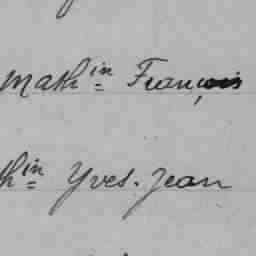 Math^in François
th^in Yves-Jean